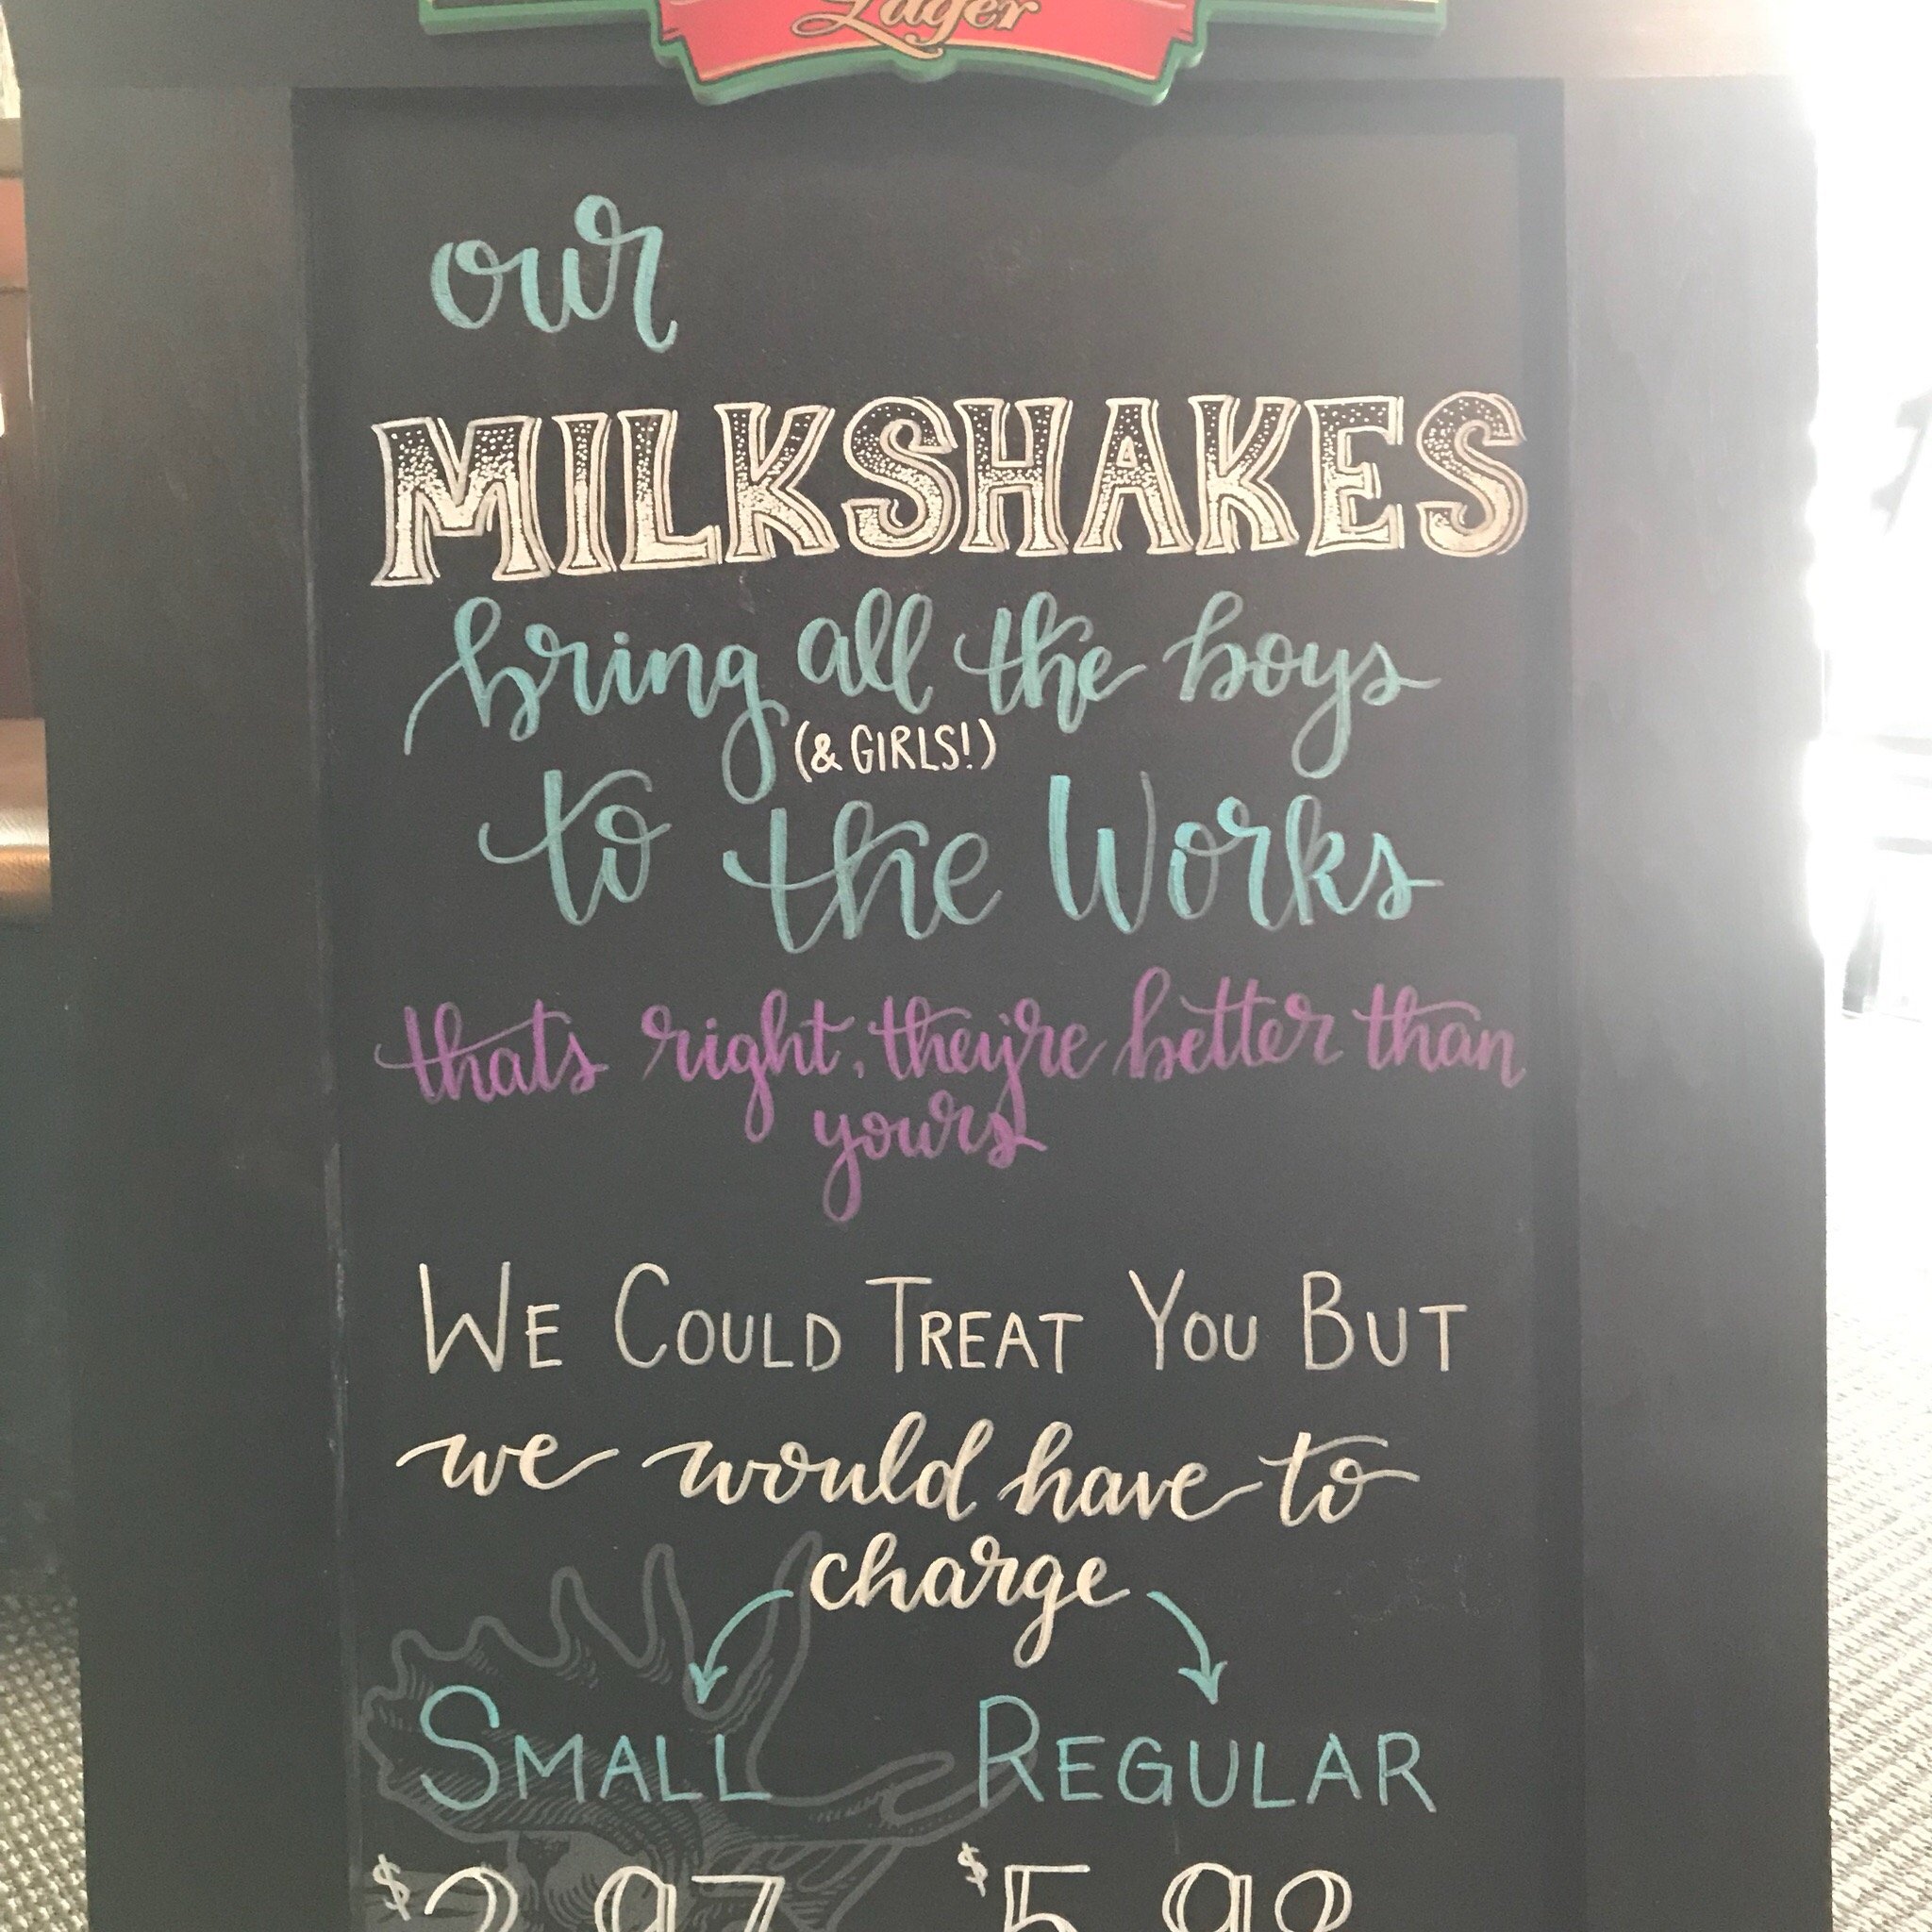 Lager
our
MILKSHAKES
bring all the boys
(& GIRLS!)
to the Works
thats right, they're better than
yours
WE COULD TREAT YOU BUT
we would have to
charge
SMALL REGULAR